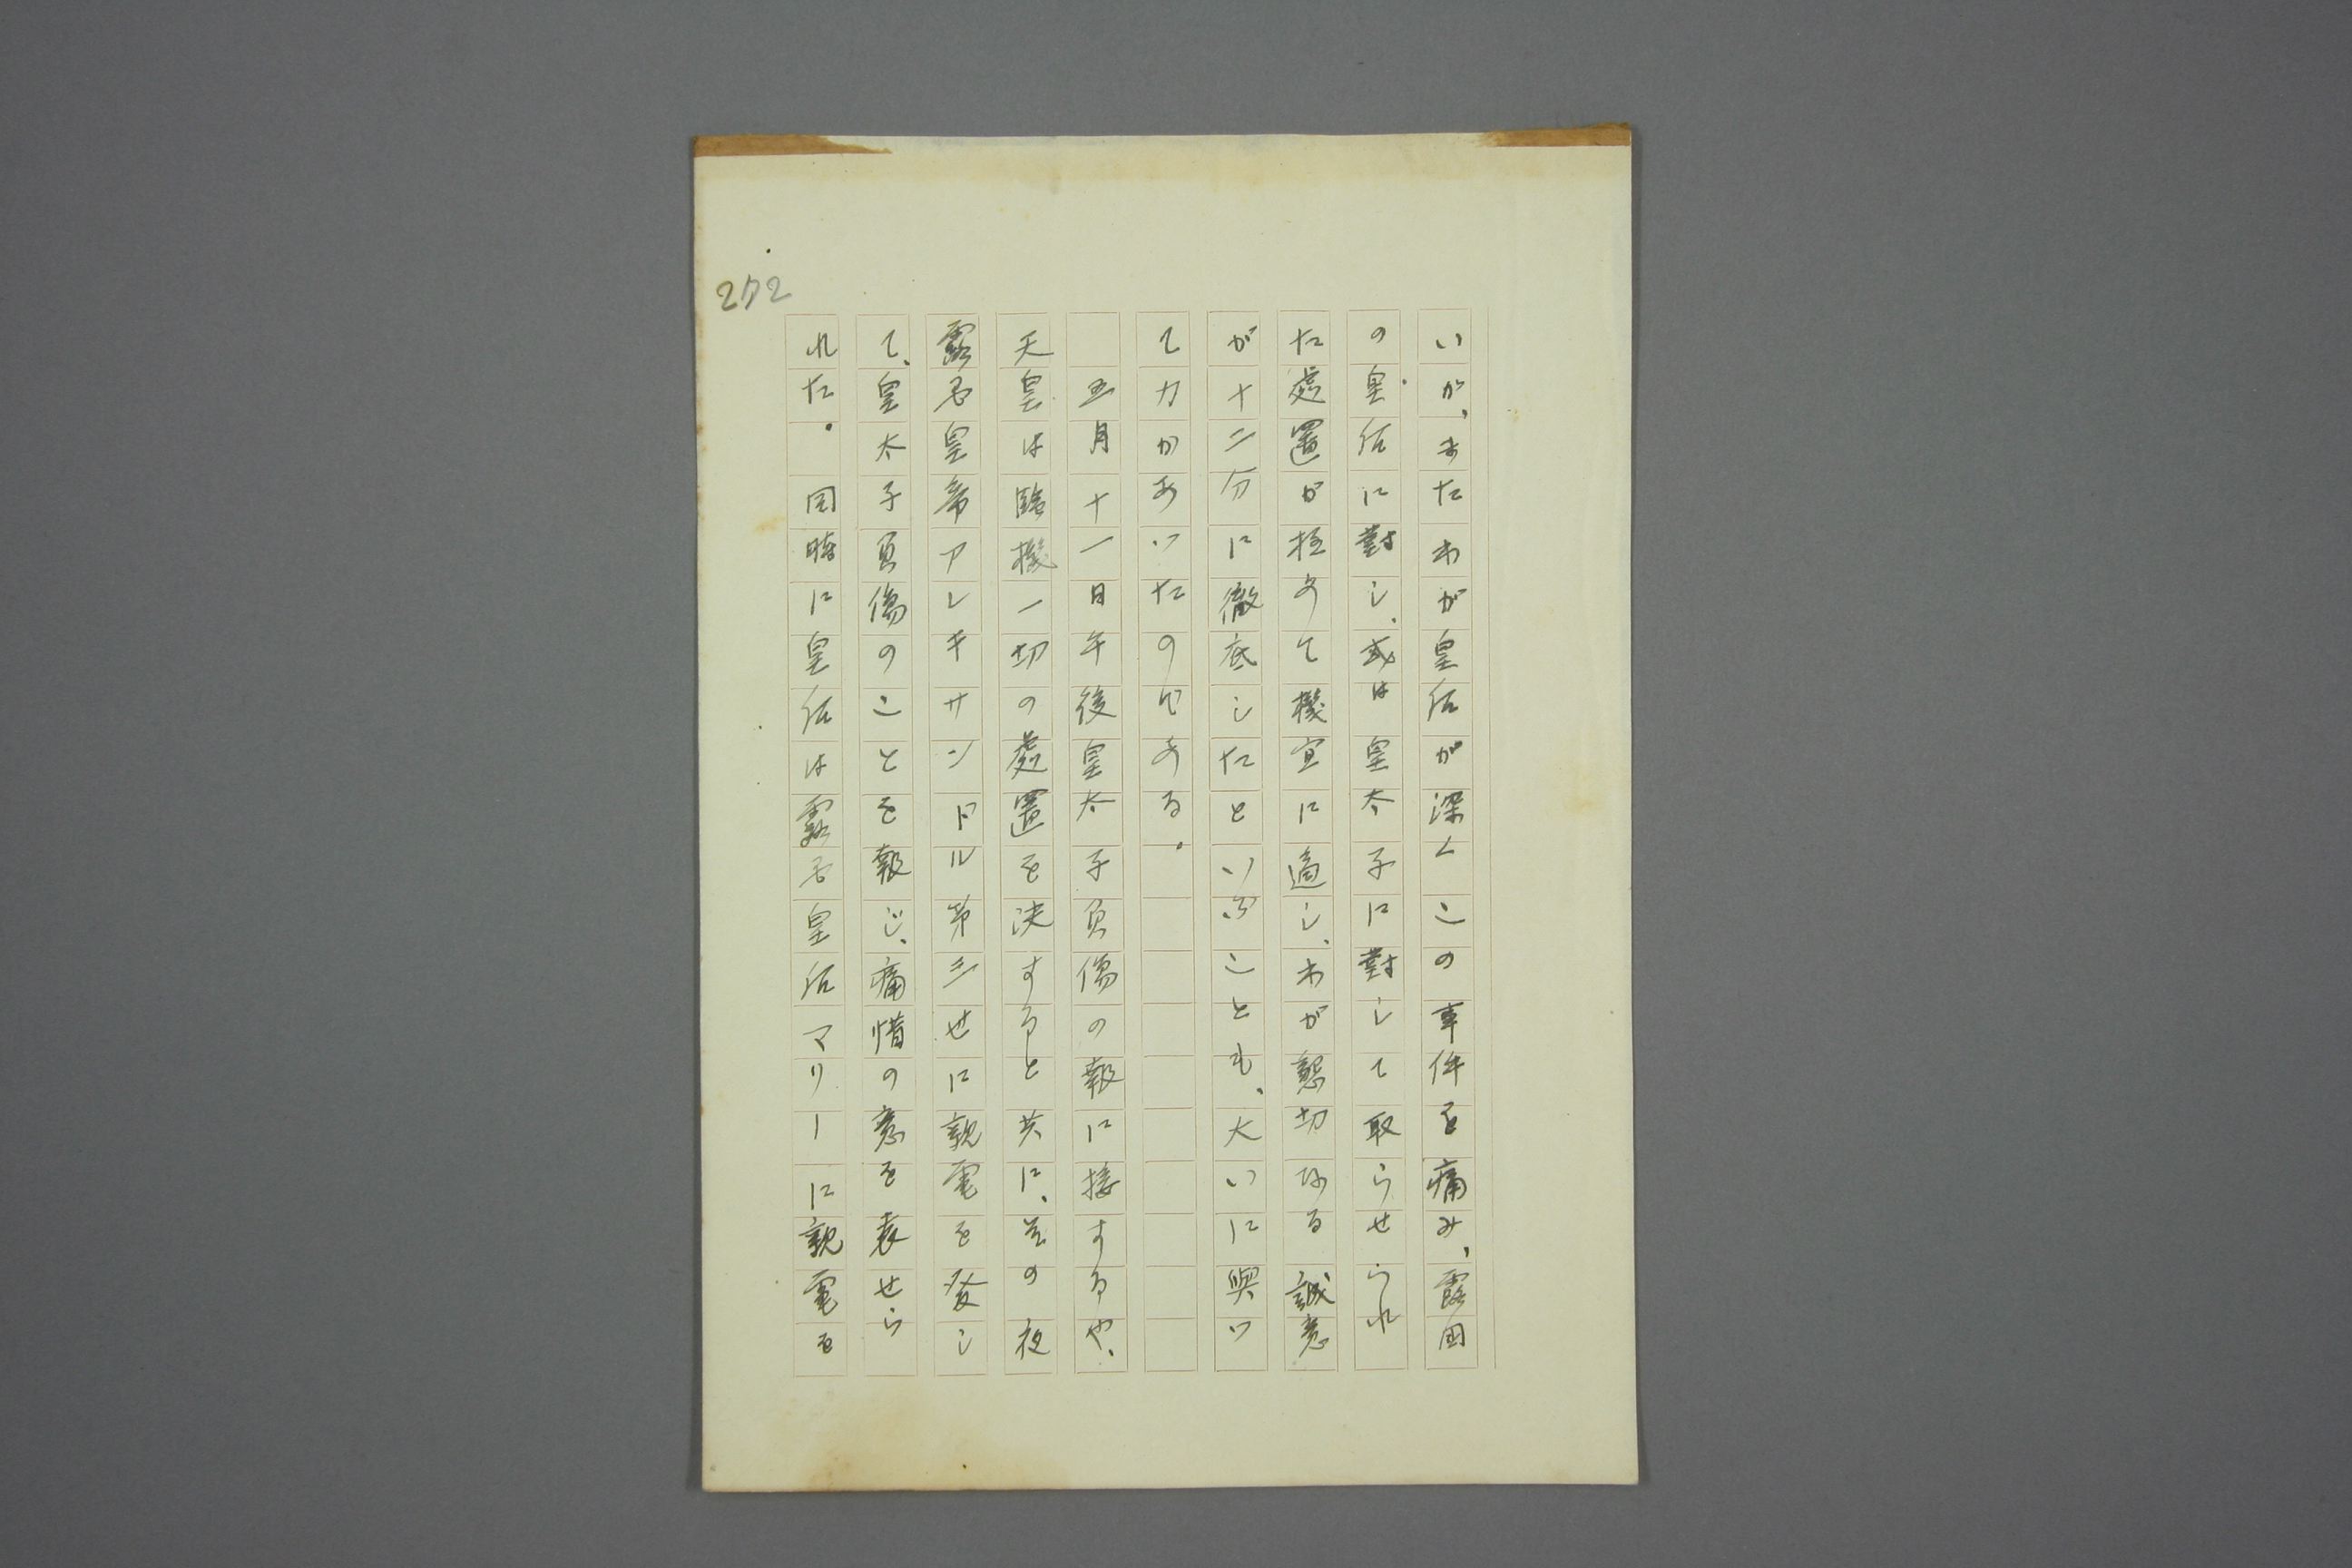 252
いが、またわが皇后が深くこの事件を痛み、露国
の皇后に對し、或は皇太子に對して取らせられ
た處置が極めて機宜に適し、わが懇切なる誠意
が十二分に徹底したといふことも、大いに與つ
て力があつたのである。
五月十一日午後皇太子負傷の報に接するや、
天皇は臨機一切の處置を決すると共に、その夜
露国皇帝アレキサンドル第三世に親電を発し
て、皇太子負傷のことを報じ、痛惜の意を表せら
れた。同時に皇后は露国皇后マリーに親電を